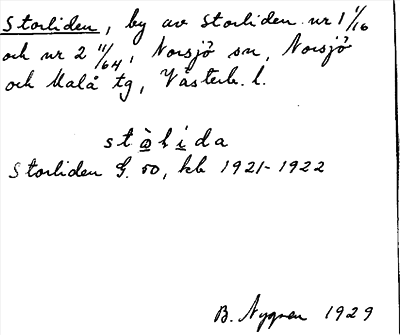 Storliden, by av Storliden nr 1 1/16
och nr 2 11/64, Norsjö sn, Norsjö
och Malå tg, Västerb. l.
stò̲li̲da
Storliden G. 50, kb 1921-1922
B. Nygren 1929